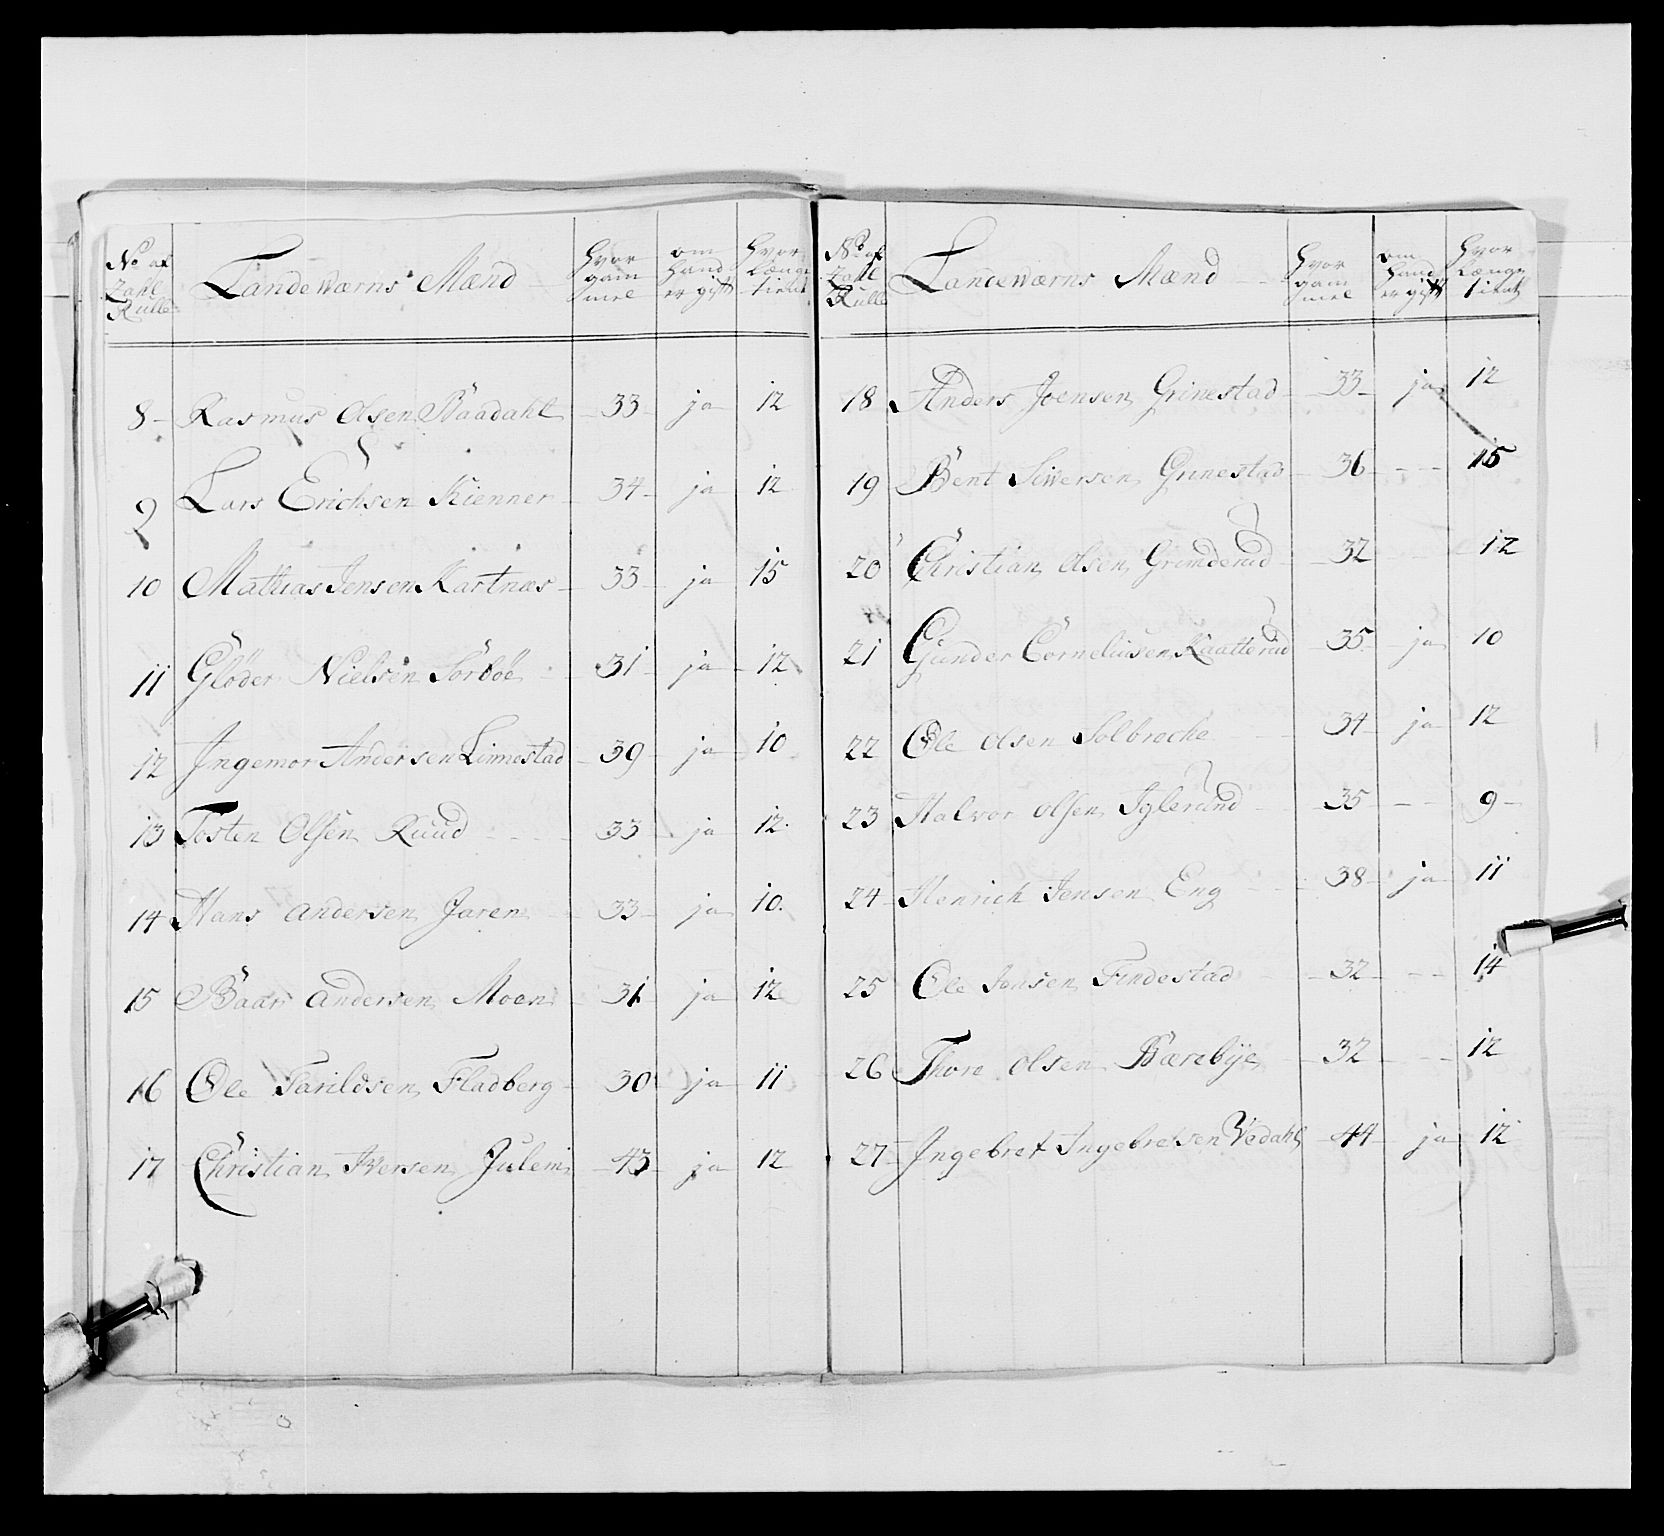 No af Zahl Rulle Landeværns Mænd Hvor gam mel om hand er gift Hvor længe tient
8 Rasmus Olsen Baadahl 33 ja 12
9 Lars Erichsen Kienner 34 ja 12
10 Mathias Jensen Kastnæs 33 ja 15
11 Gløder Nielsen Sørbøe 31 ja 12
12 Ingemor Andersen Linnestad 39 ja 10
13 Tosten Olsen Ruud 33 ja 12
14 Hans Andersen Jaren 33 ja 10
15 Baar Andersen Moen 31 ja 12
16 Ole Tarildsen Fladberg 30 ja 11
17 Christian Iversen Julem 43 ja 12
No af Zahl Rulle Landeværns Mænd Hvor gam mel om hand er gift Hvor længe tient
18 Anders Joensen Grinestad 33 ja 12
19 Bent Siversen Grinestad 36 - - 15
20 Christian Olsen Grimderud 32 - - 12
21 Gunder Corneliusen Kaatterud 35 ja 10
22 Ole Olsen Solbreche 34 ja 12
23 Halvor Olsen Iglerund 35 - - 9
24 Henrich Jensen Eng 38 ja 11
25 Ole Jonsen Findestad 32 - - 14
26 Thore Olsen Bærebye 32 - - 12
27 Ingebret Ingebretsen Vedahl 44 ja 12